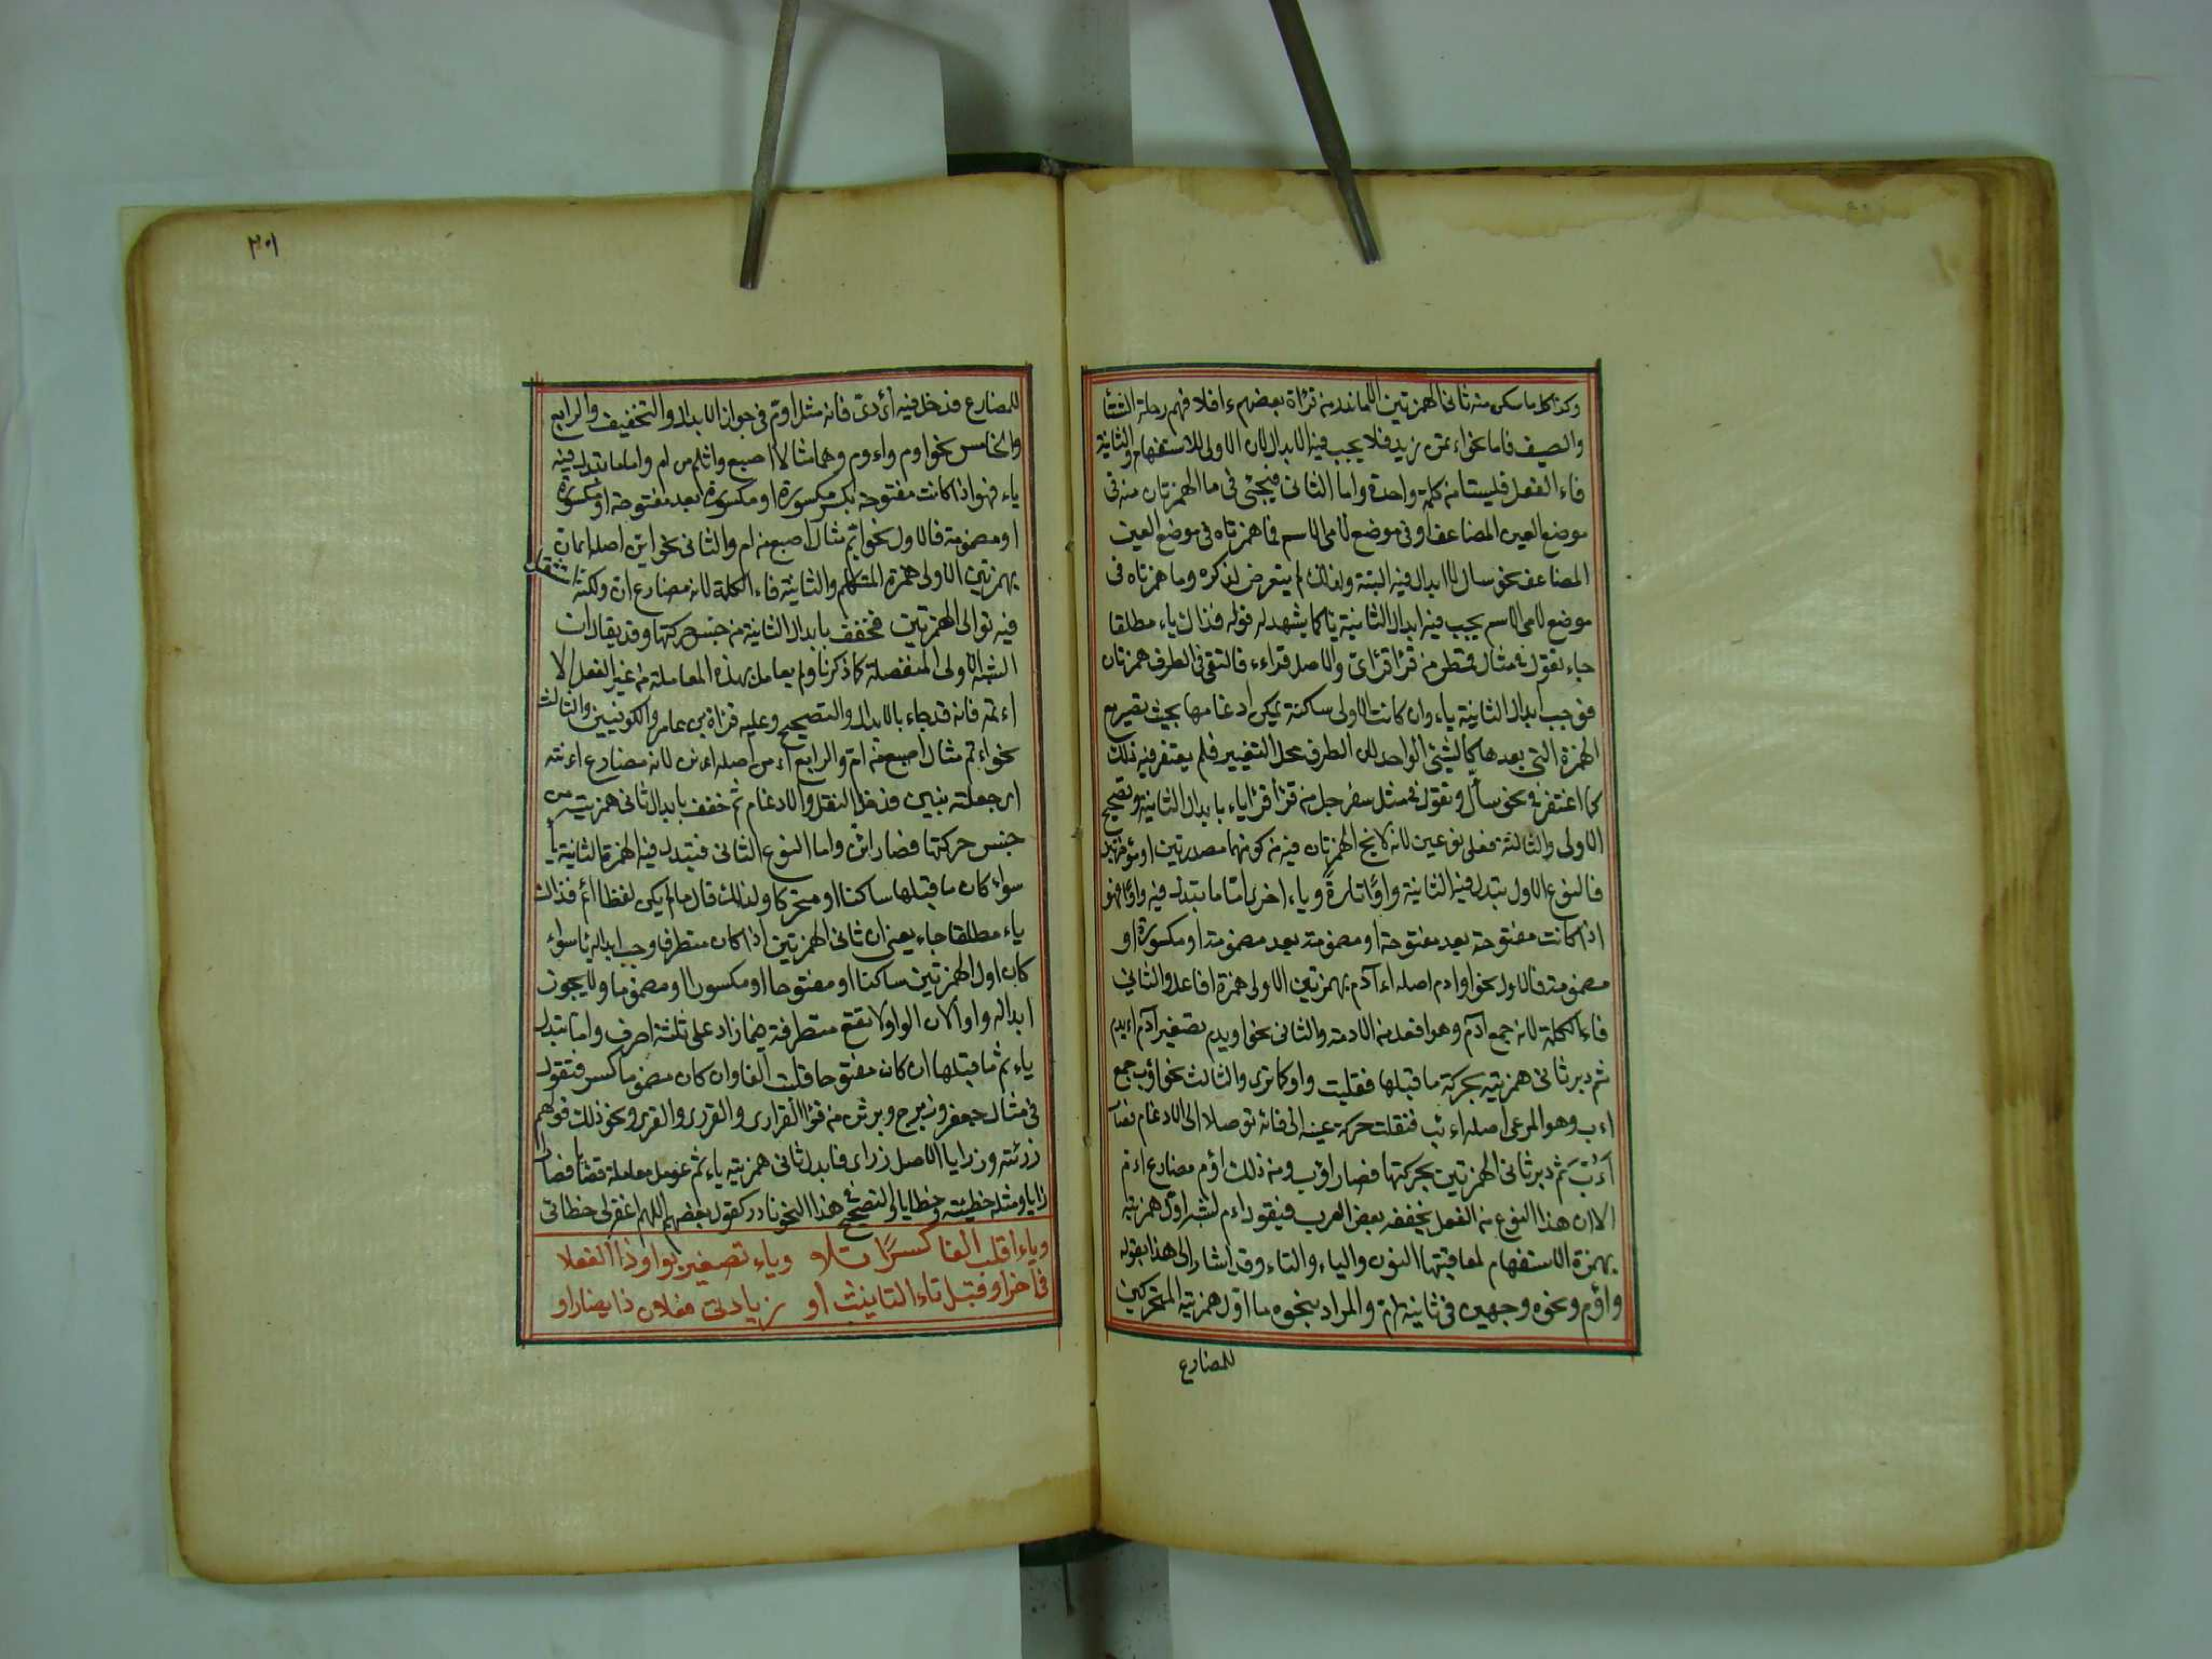 وكذا كل ما سكن منه ثانى الهمزتين الا ما ندر من قراة بعضهم ءافلافهم رحلة الشتا
والصيف فاما نحو اءتمن زيد فلا يجب فيه الابدال لان الاولى للاستفهام والثانية
فاء الفعل فليستا من كلمة واحدة واما الثانى فيجئ فى ما الهمزتان منه فى
موضع العين المضاعف او فى موضع لامى الاسم فما همزتاه فى موضع العين
المضاعف نحو سال لا ابدال فيه البتة ولذلك لم يتعرض لذكره وما همزتاه فى
موضع لامى الاسم يجب فيه ابدال الثانية يا كما يشهد له قوله فذاك ياء مطلقا
جاء تقول فى مثال قمطر من قرا قراى والاصل قراءء فالتقى فى الطرف همزتان
فوجب ابدال الثانية ياء وان كانت الاولى ساكنة يمكن ادغامها بحيث تصير مع
الهمزة التى بعدها كالشيئ الواحد لان الطرف محل التغيير فلم يغتفر فيه ذلك
كما اغتفر فى نحو سأل وتقول فى مثل سفرجل من قرأ قرأياء بابدال الثانية وتصحيح
الاولى والثالثة فعلى نوعين لانه لا تخ الهمزتان فيه من كونهما مصدرتين او مؤخرتين
فالنوع الاول تبدل فيه الثانية واوًا تارةً وياء اخرى امّا ما تبدل فيه واوًا فهو
اذا كانت مفتوحة بعد مفتوحة او مضمومة بعد مضمومة او مكسورة او
مضمومة فالاول نحو اوادم اصله اءآدم بهمزتين الاولى همزة افاعل والثانى
فاء الكلمة لانه جمع آدم وهو افعل من الادمة والثانى نحو اويدم تصغير آدم اءيدم
ثم دبر ثانى همزتيه بحركة ما قبلها فقلبت واوا كما ترى والثالث نحو اؤب جمع
اءب وهو المرعى اصله اءبب فنقلت حركة عينه الى فائه توصلا الى الادغام فصار
أءُبّ ثم دبر ثانى الهمزتين بحركتها فصار اؤب ومن ذلك اؤم مضارع اءم
الا ان هذا النوع من الفعل يخففه بعض العرب فيقول اءم لشبه اول همزتيه
بهمزة الاستفهام لمعاقبتها النون والياء والتاء وقد اشار الى هذا بقوله
واؤم ونحوه وجهين فى ثانيه ام والمراد بنحوه ما اول همزتيه المتحركتين
للمضارع
٢٠١
للمضارع فدخل فيه أءدى فانه مثل اؤم فى جواز الابدال والتخفيف والرابع
والخامس نحو اوم واءوم وهما مثالا اصبع واثلم من ام واما ما تبدل فيه
ياء فهو اذا كانت مفتوحة بكسر مكسورة او مكسورة بعد مفتوحة او مكسورة
او مضمومة فالاول نحو ايم مثال اصبع من ام والثانى نحو اين اصله اءن
بهمزتين الاولى همزة المتكلم والثانية فاء الكلمة لانه مضارع ان ولكنه استثقل
فيه توالى الهمزتين فخفف بابدال الثانية من جنس حركتها وقد يقال ان
الشبه الاولى المنفصلة كما ذكرنا ولم يعامل بهذه المعاملة من غير الفعل الا
اءمة فانه قد جاء بالابدال والتصحيح وعليه قراة بن عامر والكوفيين والثالث
نحو اءم مثال اصبع من ام والرابع اءن اصله اءنن لانه مضارع اءننته
اى جعلته ينين فدخل النقل والادغام ثم خفف بابدال ثانى همزتيه من
جنس حركتها فصار اين واما النوع الثانى فتبدل فيه الهمزة الثانية يا
سواء كان ما قبلها ساكنا او متحركا ولذلك قال ما لم يكن لفظا اتم فذاك
ياء مطلقا جاء يعنى ان ثانى الهمزتين اذا كان متطرفا وجب ابداله يا سواء
كان اول الهمزتين ساكنا او مفتوحا او مكسورا او مضموما ولا يجوز
ابداله واوا لان الواو لا تقع متطرفة فيما زاد على ثلثة احرف واما تبدل
ياء ثم ما قبلها ان كان مفتوحا قلبت الفا وان كان مضموما كسر فتقول
فى مثال جعفر وزبرج وبرثن من قرا القراى والقرى والقرى ونحو ذلك قولهم
رزئته ورزايا الاصل رزاى فابدل ثانى همزتيه ياء ثم عومل معاملة قضايا فصار
رزايا ومثله خطيئة وخطايا والتصحيح فى هذا النحو نادر كقول بعضهم اللهم اغفر لى خطائى
وياءً اقلب الفا كسرًا تلا وياء تصغير بواو ذا افعلا
فى اخر او قبل تاء التانيث او زيادتى فعلان ذا يضا راو